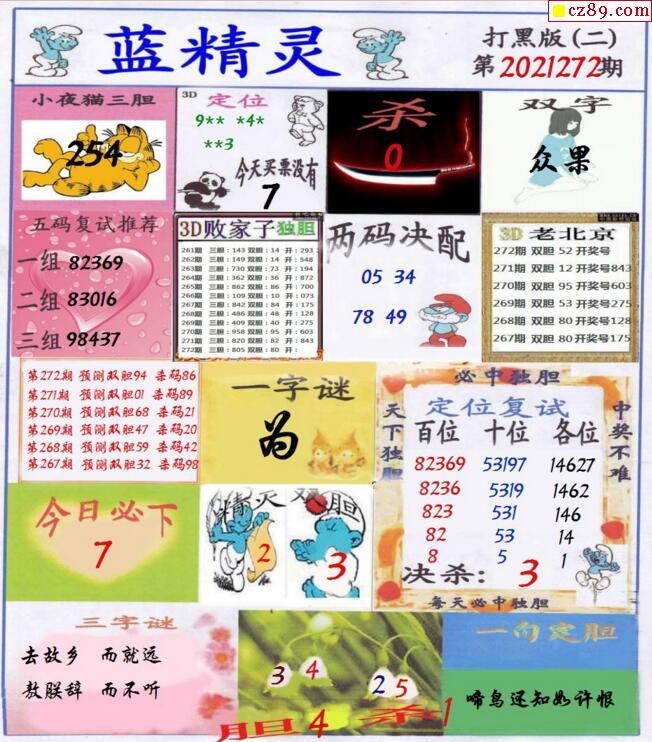 cz89.com
蓝精灵
打黑版(二)
第2021272期
小夜猫三胆
254
3D
定位
9** *4*
**3
今天买票没有
7
杀
0
双字
众果
五码复试推荐
一组 82369
二组 83016
三组 98437
3D败家子独胆
261期 三胆:143 双胆:14 开:293
262期 三胆:149 双胆:14 开:548
263期 三胆:730 双胆:73 开:194
264期 三胆:362 双胆:36 开:872
265期 三胆:862 双胆:86 开:700
266期 三胆:109 双胆:10 开:073
267期 三胆:842 双胆:84 开:175
268期 三胆:489 双胆:48 开:128
269期 三胆:409 双胆:40 开:275
270期 三胆:958 双胆:95 开:603
271期 三胆:820 双胆:82 开:843
272期 三胆:805 双胆:80 开:
两码决配
05 34
78 49
3D 老北京
272期 双胆 52 开奖号
271期 双胆 12 开奖号843
270期 双胆 95 开奖号603
269期 双胆 53 开奖号275
268期 双胆 80 开奖号128
267期 双胆 80 开奖号175
第272期 预测双胆94 杀码86
第271期 预测双胆01 杀码89
第270期 预测双胆68 杀码21
第269期 预测双胆47 杀码20
第268期 预测双胆59 杀码42
第267期 预测双胆32 杀码98
一字谜
为
必中独胆
天下独胆
中奖不难
定位复试
百位 十位 各位
82369 53197 14627
8236 5319 1462
823 531 146
82 53 14
8 5 1
决杀: 3
每天必中独胆
今日必下
7
精灵双胆
2 3
三字谜
去故乡 而就远
敖朕辞 而不听
3 4 2 5
胆4 杀1
一句定胆
啼鸟还知如许恨